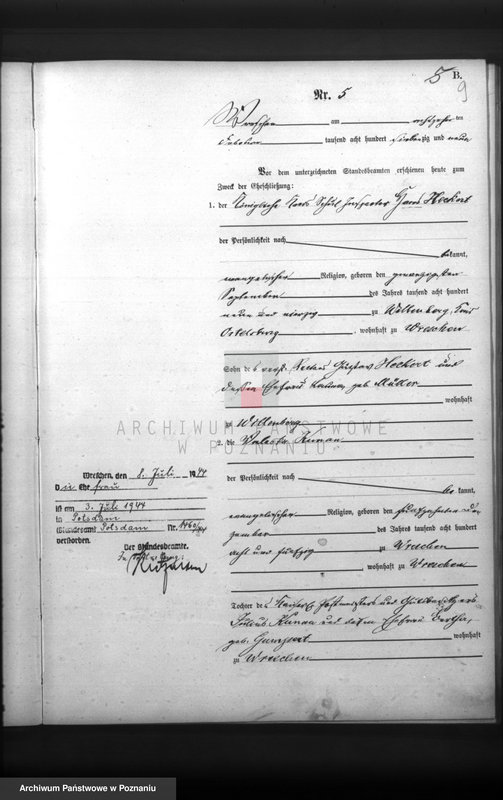 5 B.
9
Nr. 5
Wreschen am achtzehnten
Februar tausend acht hundert siebenzig und neun
Vor dem unterzeichneten Standesbeamten erschienen heute zum
Zweck der Eheschließung:
1. der Königliche Kreis Schul Inspector Hans Heckert
der Persönlichkeit nach
bekannt,
evangelischer Religion, geboren den zwanzigsten
September des Jahres tausend acht hundert
neun und vierzig zu Willenberg, Kreis
Ortelsburg, wohnhaft zu Wreschen
Sohn des verst. Gustav Heckert und
dessen Ehefrau geb. Müller
wohnhaft
zu Willenberg
2. die Valeska Kunau
der Persönlichkeit nach
bekannt,
evangelischer Religion, geboren den De-
zember des Jahres tausend acht hundert
acht und fünfzig zu Wreschen
wohnhaft zu Wreschen
Tochter des Kaiserl. Postmeisters und Gutsbesitzers
Julius Kunau und dessen Ehefrau Bertha,
geb. wohnhaft
zu Wreschen
Wreschen, den 8. Juli 1944
Die Ehefrau
ist am 3. Juli 1944
in Potsdam
(Standesamt Potsdam Nr.
verstorben.
Der Standesbeamte.
ARCHIWUM PAŃSTWOWE
W POZNANIU
Archiwum Państwowe w Poznaniu